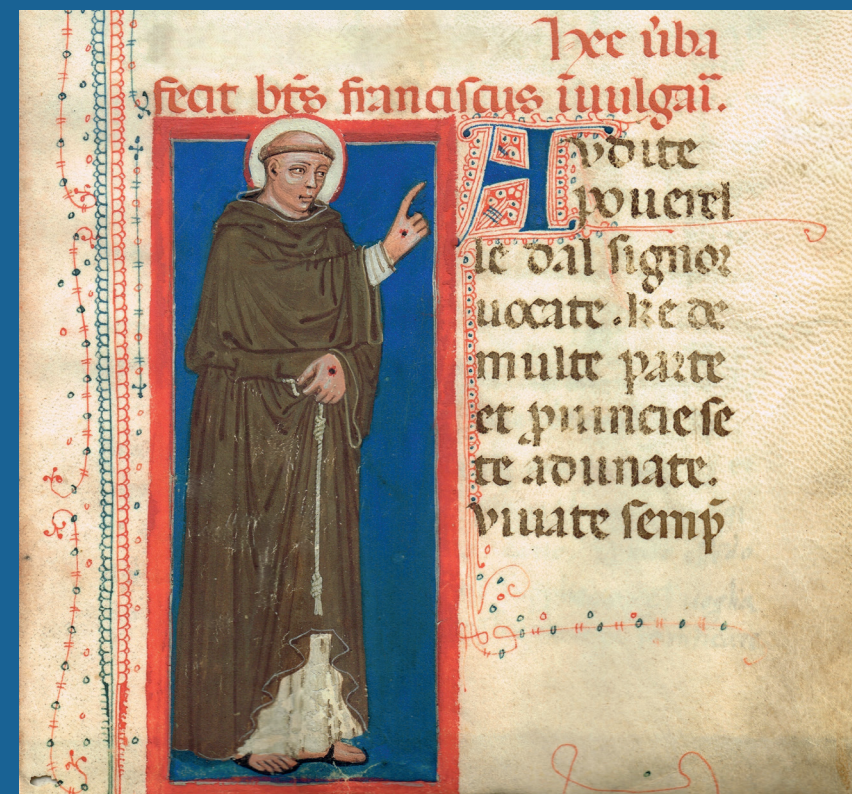 hec u̅ba
fecit bt̅s franciscus i̅uulgai̅.
Audite
pouerel
le dal signor
uocate . ke de
multe parte
et ꝓuincie se
te adunate.
Viuate semp̅